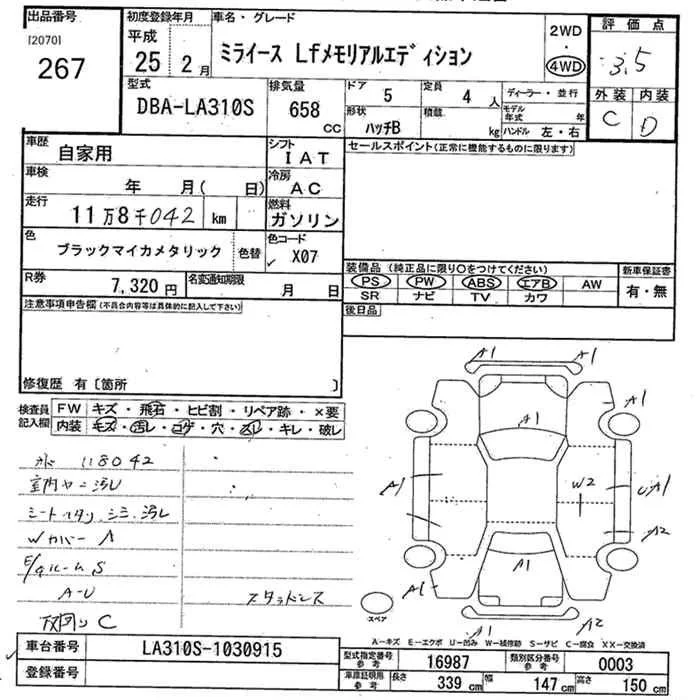 出品番号
[2070]
267
初度登録年月
平成
25 2月
車名・グレード
ミライース Lfメモリアルエディション
2WD
・
4WD
評価点
3.5
外装 内装
C D
型式
DBA-LA310S
排気量
658
CC
ドア
5
定員
4 人
形状
ハッチB
積載
kg
ディーラー・並行
モデル年式 年
ハンドル 左・右
車歴
自家用
シフト
IAT
セールスポイント(正常に機能するものに限ります)
車検
年 月( 日)
冷房
AC
走行
11万8千042 km
燃料
ガソリン
色
ブラックマイカメタリック
色替
色コード
X07
R券
7,320円
名変通知期限
月 日
装備品 (純正品に限り○をつけてください)
PS PW ABS エアB AW
SR ナビ TV カワ
新車保証書
有・無
後日品
注意事項申告欄(不具合内容等は具体的に記入して下さい)
修復歴 有〔箇所 〕
検査員記入欄
FW キズ・飛石・ヒビ割・リペア跡・×要
内装 キズ・汚レ・コゲ・穴・スレ・キレ・破レ
118042
室内ヤニ汚レ
シートスタリ シミ 汚レ
Wカバー A
E/gルームS
A-U
スタッドレス
下回り C
A1 A1
A1
A1
A1
W2
U A1
A2
A1
A1
A2
スペア
A-キズ E-エクボ U-凹み W-補修跡 S-サビ C-腐食 XX-交換済
車台番号
LA310S-1030915
登録番号
型式指定番号 参考
16987
類別区分番号 参考
0003
車庫証明用 参考
長さ 339 cm
幅 147 cm
高さ 150 cm